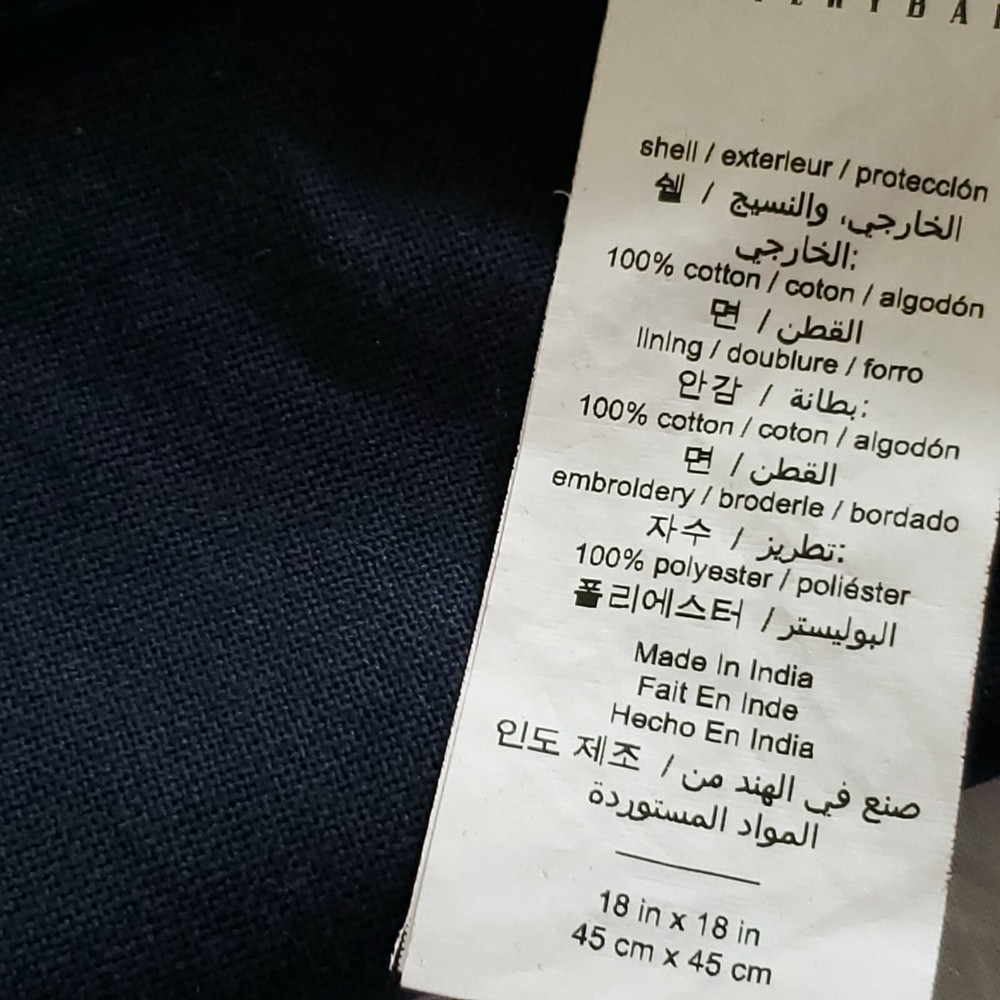 shell / exterieur / protección
쉘 / الخارجي، والنسيج
الخارجي:
100% cotton / coton / algodón
면 / القطن
lining / doublure / forro
안감 / بطانة:
100% cotton / coton / algodón
면 / القطن
embroidery / broderie / bordado
자수 / تطريز:
100% polyester / poliéster
폴리에스터 / البوليستر
Made In India
Fait En Inde
Hecho En India
인도 제조 / صنع في الهند من
المواد المستوردة
18 in x 18 in
45 cm x 45 cm